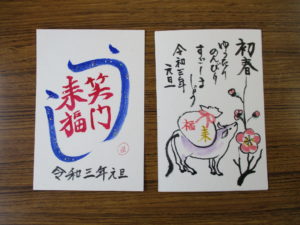 笑門
来福
令和三年元旦
初春
ゆったり
のんびり
すごしましょう
令和三年
元旦
福
来